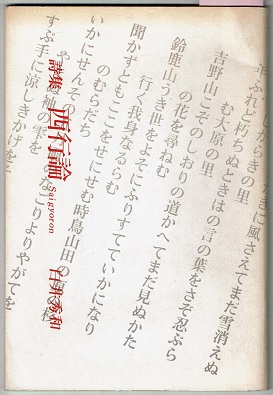 がきに風さえてまだ雪消えぬ
年ふれど朽ちぬときはの言の葉をさぞ忍ぶら
む大原の里
吉野山こぞのしおりの道かへてまだ見ぬかた
の花を尋ねむ
鈴鹿山うき世をよそにふりすてていかになり
行く我身なるらむ
聞かずともここをせにせむ時鳥山田の原の杉
のむらだち
いかにせん
こりよりやがてを
すぶ手に涼しきかげをそ
詩集 西行論
Saigyoron
臼井秀和